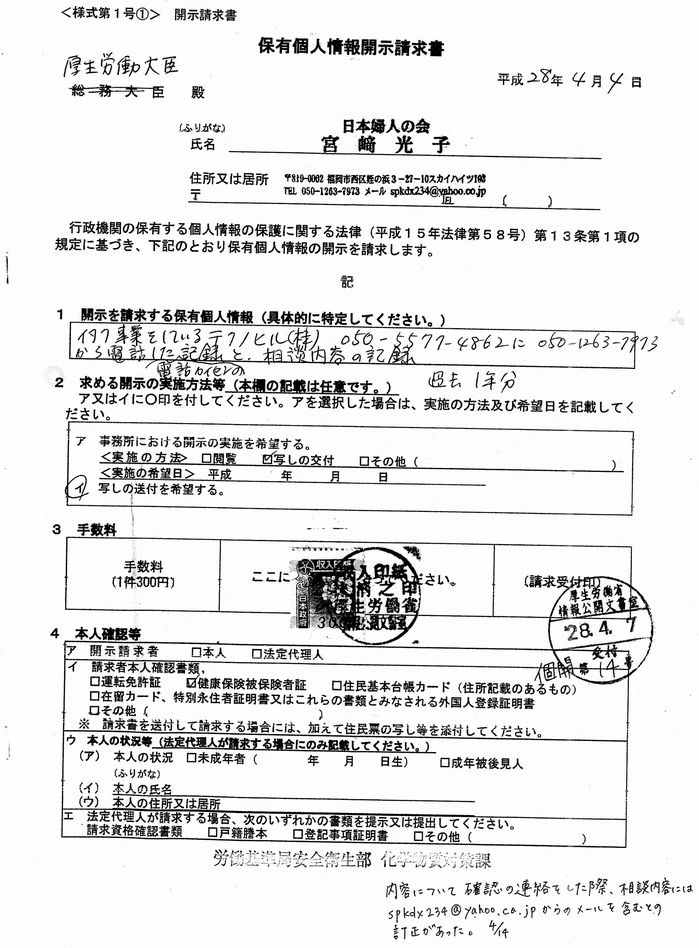 <様式第1号①> 開示請求書
保有個人情報開示請求書
厚生労働大臣
総務大臣 殿
平成28年4月4日
(ふりがな)
氏名
日本婦人の会
宮﨑光子
住所又は居所
〒819-0002 福岡市西区姪の浜3-27-10スカイハイツ103
〒 TEL 050-1263-7973 メール spkdx234@yahoo.co.jp
℡ ( )
行政機関の保有する個人情報の保護に関する法律(平成15年法律第58号)第13条第1項の
規定に基づき、下記のとおり保有個人情報の開示を請求します。
記
1 開示を請求する保有個人情報(具体的に特定してください。)
事業をしているテクノヒル(株) 050-5577-4862に 050-1263-7973
から電話した記録と、相談内容の記録
電話 過去1年分
2 求める開示の実施方法等(本欄の記載は任意です。)
ア又はイに○印を付してください。アを選択した場合は、実施の方法及び希望日を記載してく
ださい。
ア 事務所における開示の実施を希望する。
<実施の方法> □閲覧 ☑写しの交付 □その他( )
<実施の希望日> 平成 年 月 日
イ 写しの送付を希望する。
3 手数料
手数料
(1件300円)
ここに ください。
収入印紙
日本政府
(請求受付印)
厚生労働省
情報公開文書室
28.4.7
受付
個開第14号
4 本人確認等
ア 開示請求者 □本人 □法定代理人
イ 請求者本人確認書類
□運転免許証 ☑健康保険被保険者証 □住民基本台帳カード(住所記載のあるもの)
□在留カード、特別永住者証明書又はこれらの書類とみなされる外国人登録証明書
□その他( )
※ 請求書を送付して請求する場合には、加えて住民票の写し等を添付してください。
ウ 本人の状況等(法定代理人が請求する場合にのみ記載してください。)
(ア) 本人の状況 □未成年者( 年 月 日生) □成年被後見人
(ふりがな)
(イ) 本人の氏名
(ウ) 本人の住所又は居所
エ 法定代理人が請求する場合、次のいずれかの書類を提示又は提出してください。
請求資格確認書類 □戸籍謄本 □登記事項証明書 □その他( )
労働基準局安全衛生部 化学物質対策課
内容について確認の連絡をした際、相談内容には
spkdx234@yahoo.ca.jpからのメールを含むとの
訂正があった。4/14